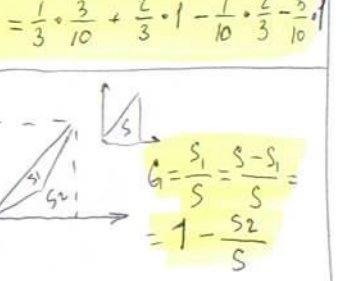 = 1/3 · 3/10 + 2/3 · 1 - 1/10 · 2/3 - 3/10 · 1
S
S1
S2
G = S1/S = S-S1/S =
= 1 - S2/S